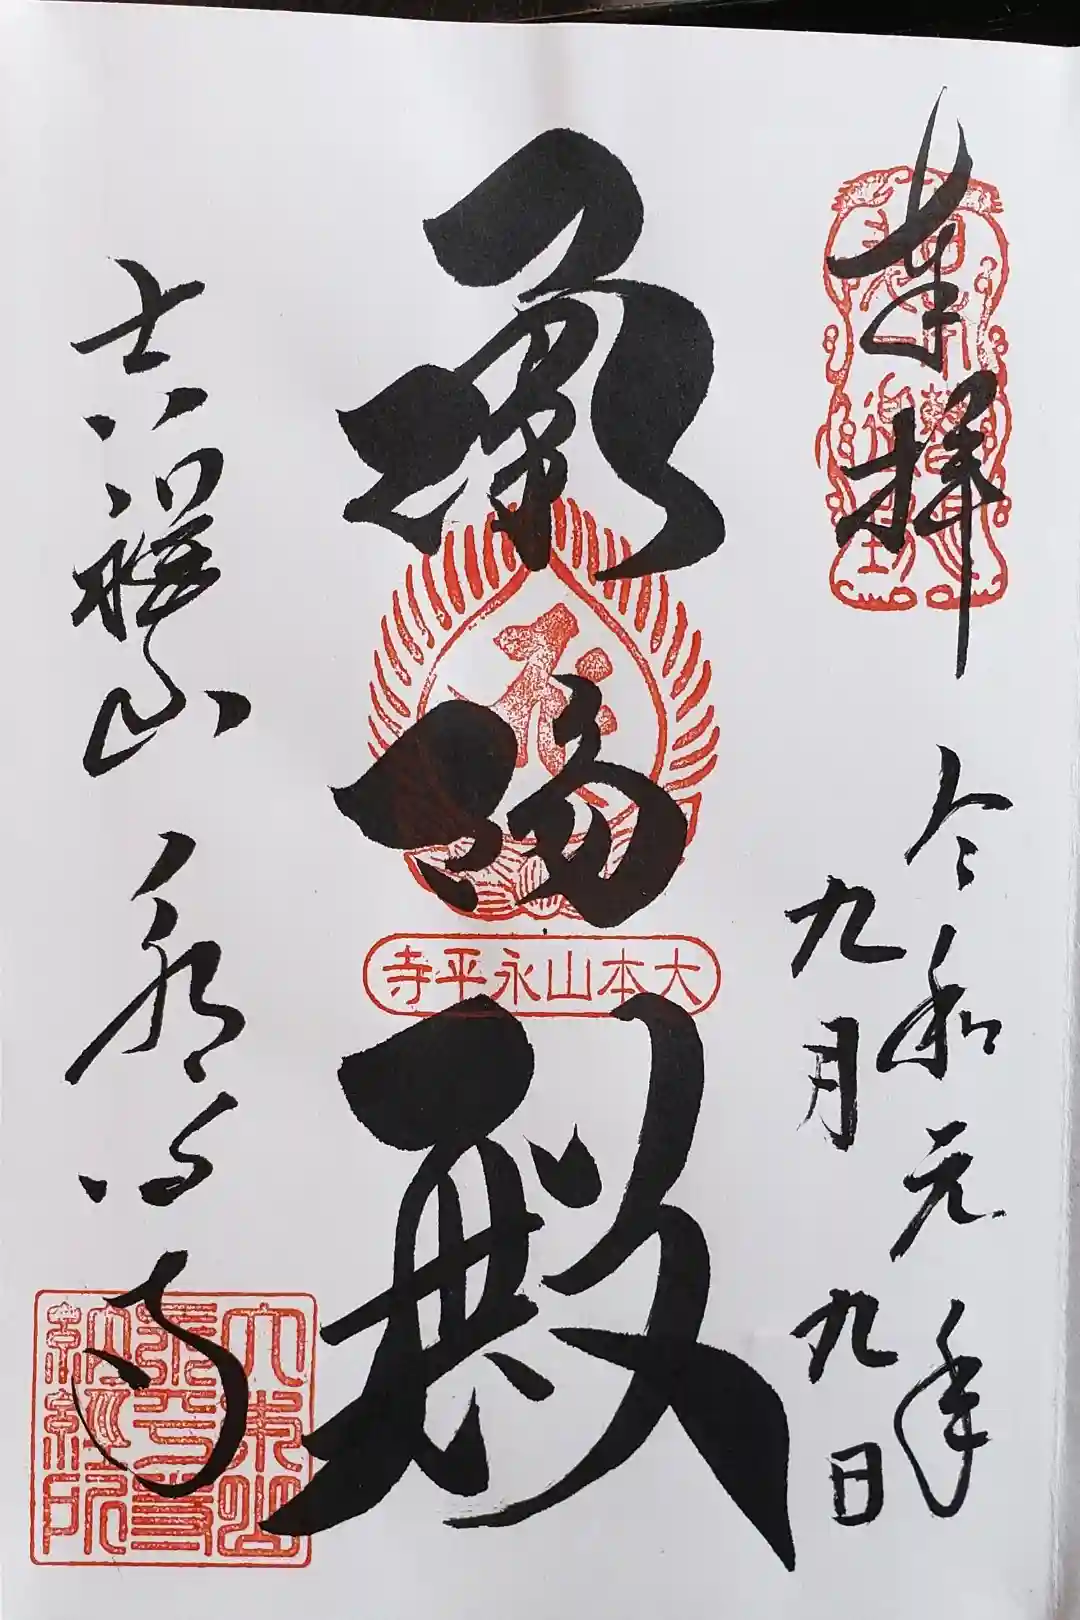 奉拝
令和元年
九月九日
承陽殿
大本山永平寺
吉祥山
永平寺
大本山
永平寺
納経所